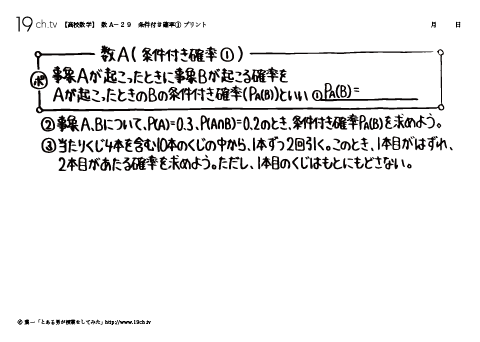 19ch.tv 【高校数学】 数A-29 条件付き確率① プリント 月 日
数A(条件付き確率①)
ポ 事象Aが起こったときに事象Bが起こる確率を
Aが起こったときのBの条件付き確率(PA(B))といい ①PA(B)=
②事象A、Bについて、P(A)=0.3、P(A∩B)=0.2のとき、条件付き確率PA(B)を求めよう。
③当たりくじ4本を含む10本のくじの中から、1本ずつ2回引く。このとき、1本目がはずれ、
2本目があたる確率を求めよう。ただし、1本目のくじはもとにもどさない。
「とある男が授業をしてみた」http://www.19ch.tv